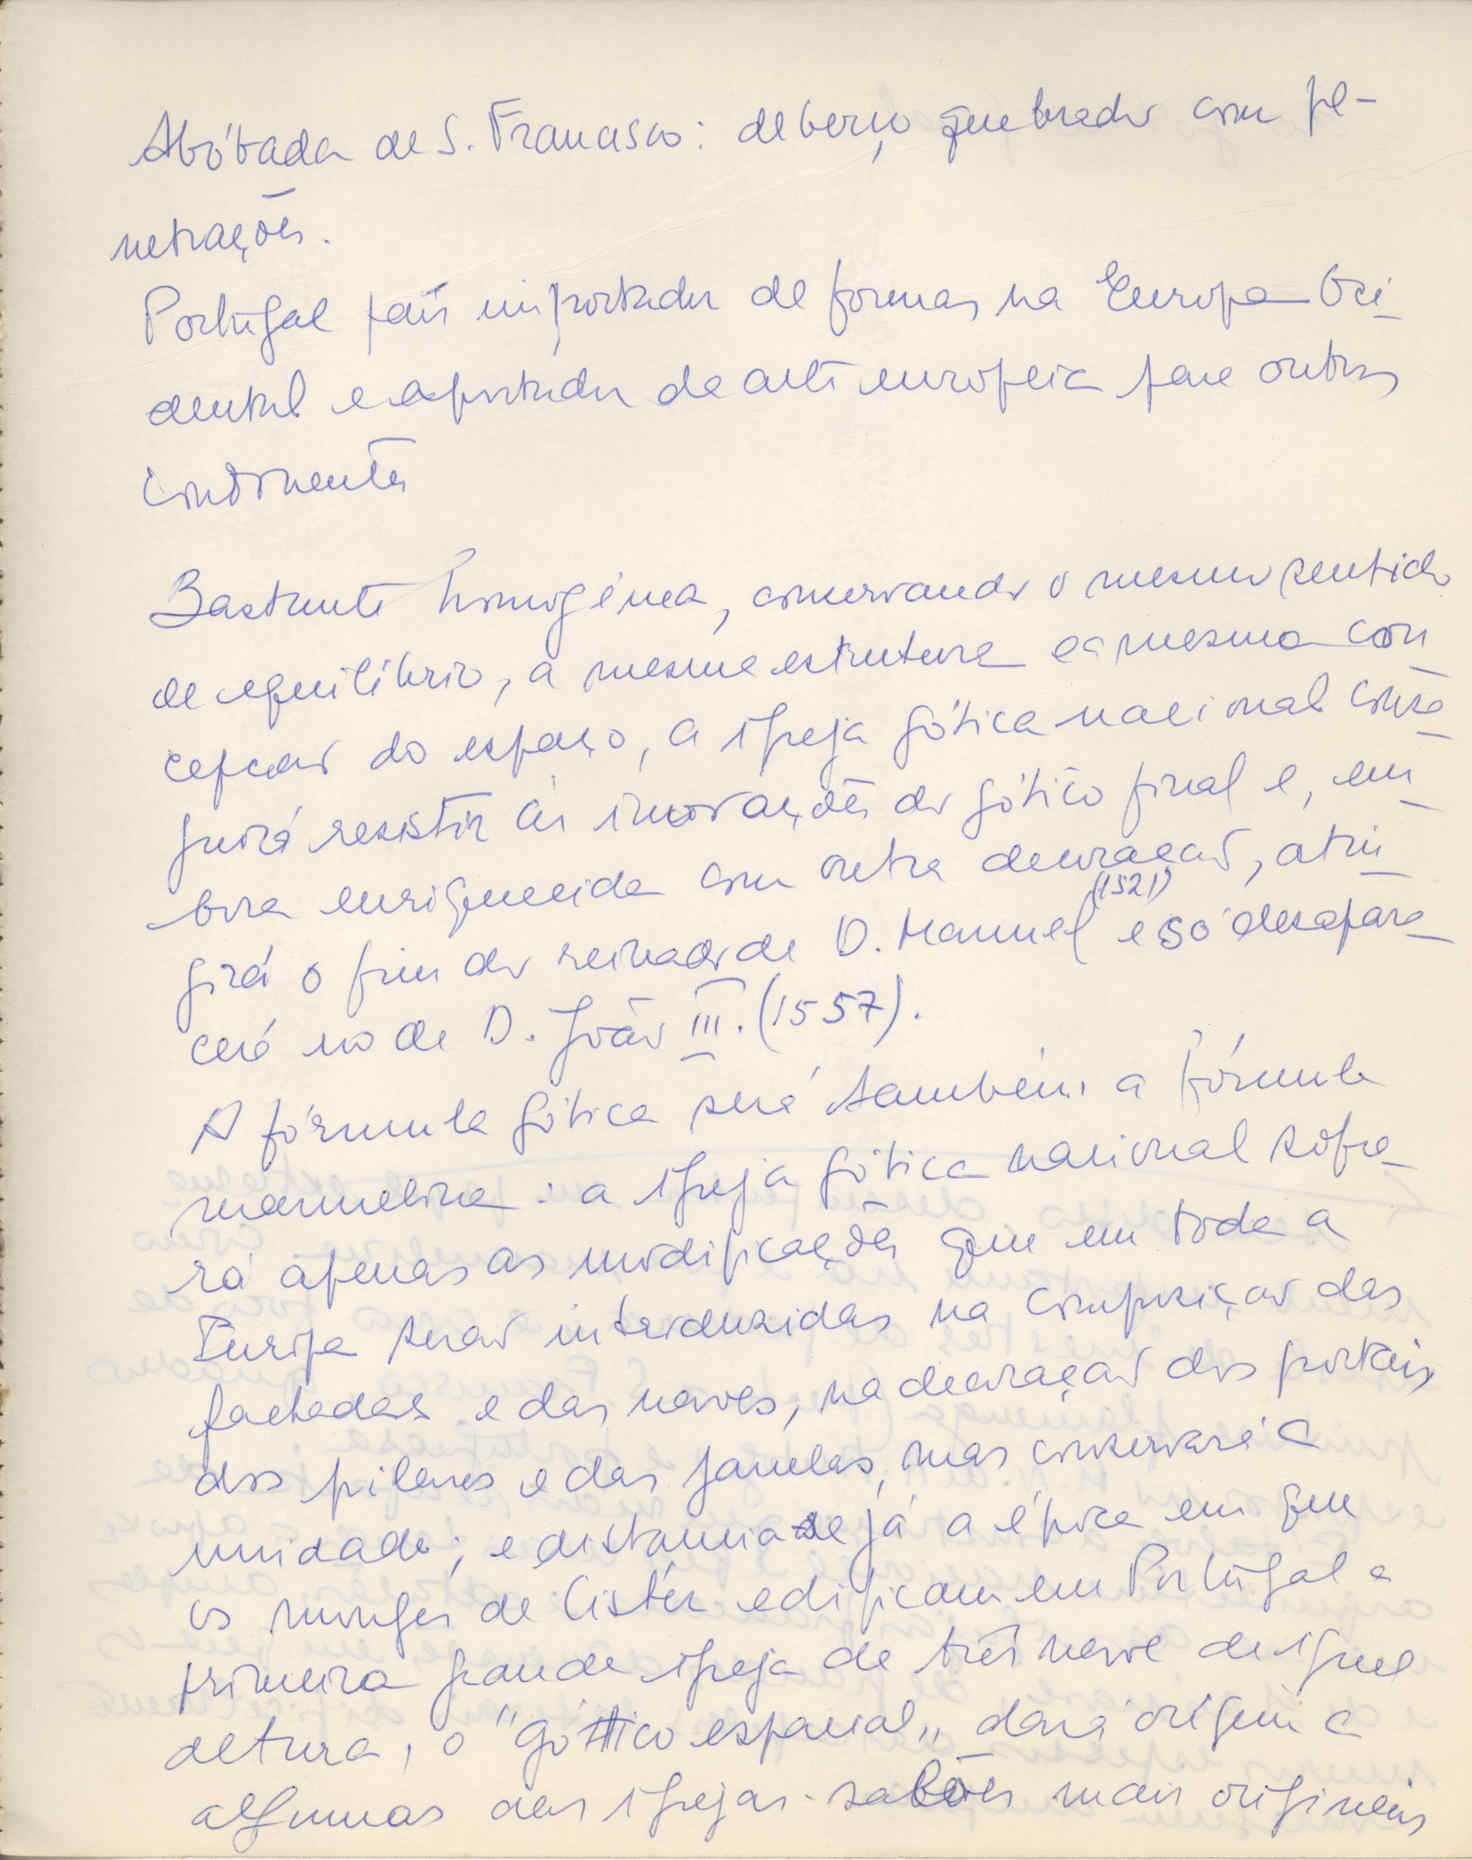 Abóbada de S. Francisco: de berço quebrado com pe-
netrações.
Portugal país importador de formas na Europa Oci
dental e exportador de arte europeia para outros
continentes
Bastante homogénea, conservando o mesmo sentido
de equilíbrio, a mesma estrutura e a mesma con
cepção do espaço, a igreja gótica nacional conse
guirá resistir às inovações do gótico final e, em
bora enriquecida com outra decoração, atin
girá o fim do reinado de D. Manuel (1521) e só desapare
cerá no de D. João III. (1557).
A fórmula gótica será também a fórmula
manuelina: a igreja gótica nacional sofre
rá apenas as modificações que em toda a
Europa serão introduzidas na composição das
fachadas e das naves, na decoração dos portais,
dos pilares e das janelas, mas conservará a
unidade; e distancia-se já a época em que
os monges de Cister edificam em Portugal a
primeira grande igreja de três nave de igual
altura, o "gótico espacial" dará origem a
algumas das igrejas-salões mais originais